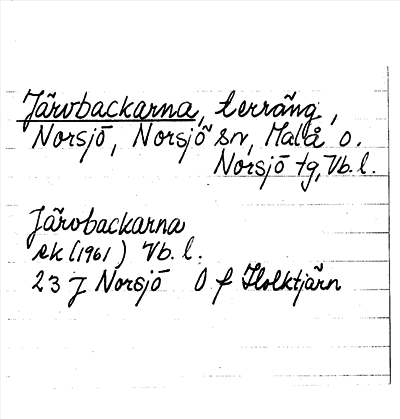 Järvbackarna, terräng,
Norsjö, Norsjö sn, Malå o.
Norsjö tg, Vb. l.
Järvbackarna
ek (1961) Vb. l.
23 J Norsjö O f Holktjärn